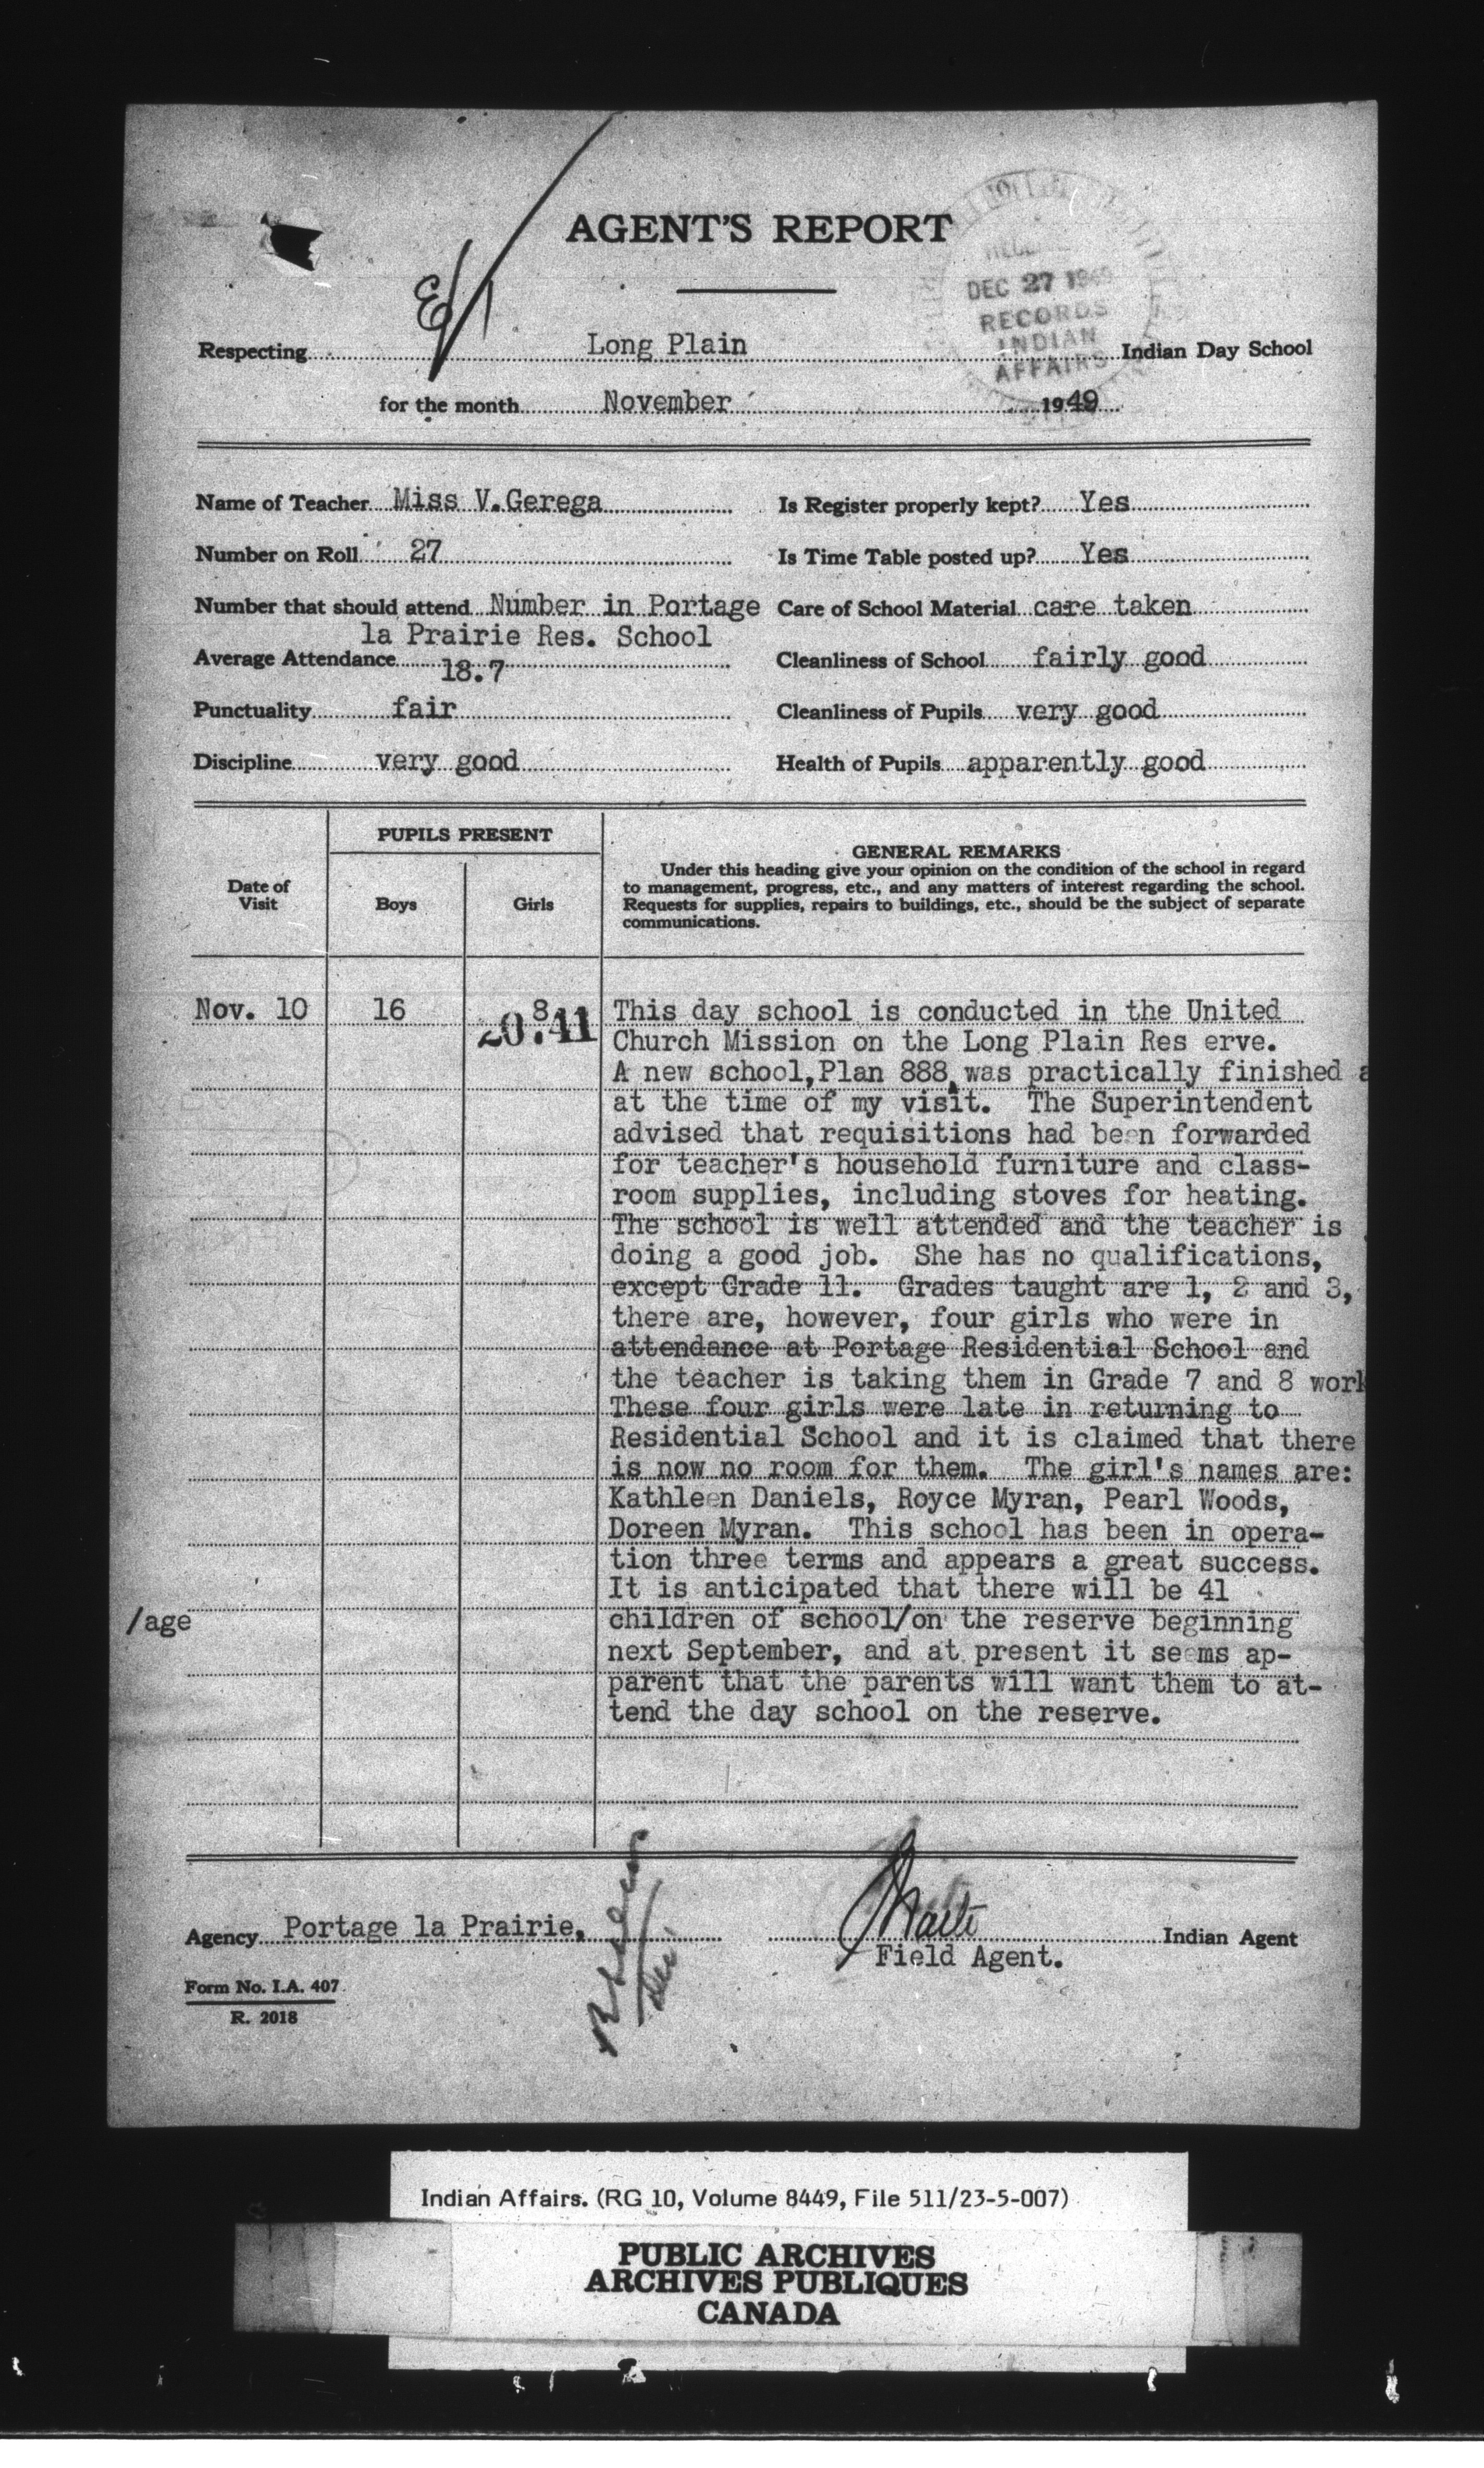 AGENT'S REPORT
DEC 27 1949
RECORDS
INDIAN
AFFAIRS
Respecting Long Plain Indian Day School
for the month November 1949
Name of Teacher Miss V. Gerega Is Register properly kept? Yes
Number on Roll 27 Is Time Table posted up? Yes
Number that should attend Number in Portage Care of School Material care taken
la Prairie Res. School
Average Attendance 18.7 Cleanliness of School fairly good
Punctuality fair Cleanliness of Pupils very good
Discipline very good Health of Pupils apparently good
PUPILS PRESENT
GENERAL REMARKS
Under this heading give your opinion on the condition of the school in regard
to management, progress, etc., and any matters of interest regarding the school.
Requests for supplies, repairs to buildings, etc., should be the subject of separate
communications.
Date of
Visit
Boys Girls
Nov. 10 16 8 This day school is conducted in the United
20.41
Church Mission on the Long Plain Res erve.
A new school, Plan 888, was practically finished a
at the time of my visit. The Superintendent
advised that requisitions had been forwarded
for teacher's household furniture and class-
room supplies, including stoves for heating.
The school is well attended and the teacher is
doing a good job. She has no qualifications,
except Grade 11. Grades taught are 1, 2 and 3,
there are, however, four girls who were in
attendance at Portage Residential School and
the teacher is taking them in Grade 7 and 8 work
These four girls were late in returning to
Residential School and it is claimed that there
is now no room for them. The girl's names are:
Kathleen Daniels, Royce Myran, Pearl Woods,
Doreen Myran. This school has been in opera-
tion three terms and appears a great success.
It is anticipated that there will be 41
/age children of school/on the reserve beginning
next September, and at present it seems ap-
parent that the parents will want them to at-
tend the day school on the reserve.
Agency Portage la Prairie, Indian Agent
Field Agent.
Form No. I.A. 407
R. 2018
Indian Affairs. (RG 10, Volume 8449, File 511/23-5-007)
PUBLIC ARCHIVES
ARCHIVES PUBLIQUES
CANADA